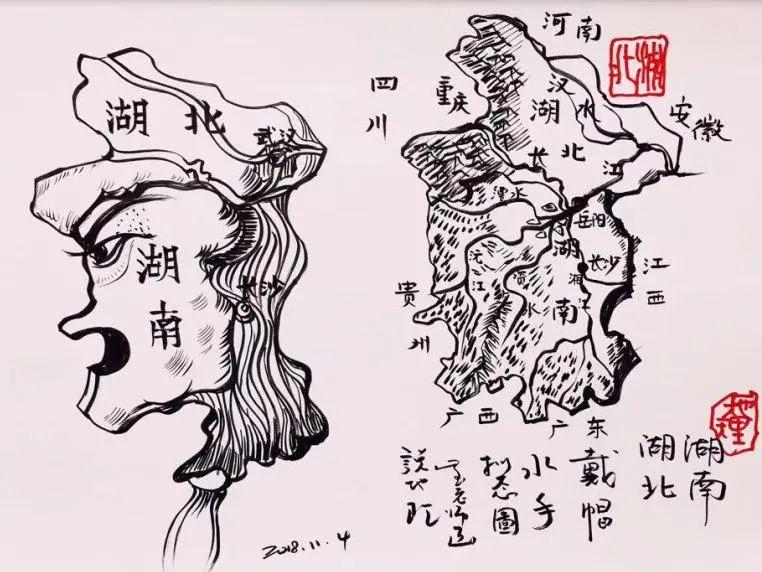 湖北
武汉
湖南
长沙
2018.11.4
河南
湖北
四川
重庆
安徽
汉水
湖北
长江
澧水
岳阳
湖南
长沙
湘江
沅江
资水
江西
贵州
广西
广东
地理
湖南
湖北
戴帽
水手
拟态圖